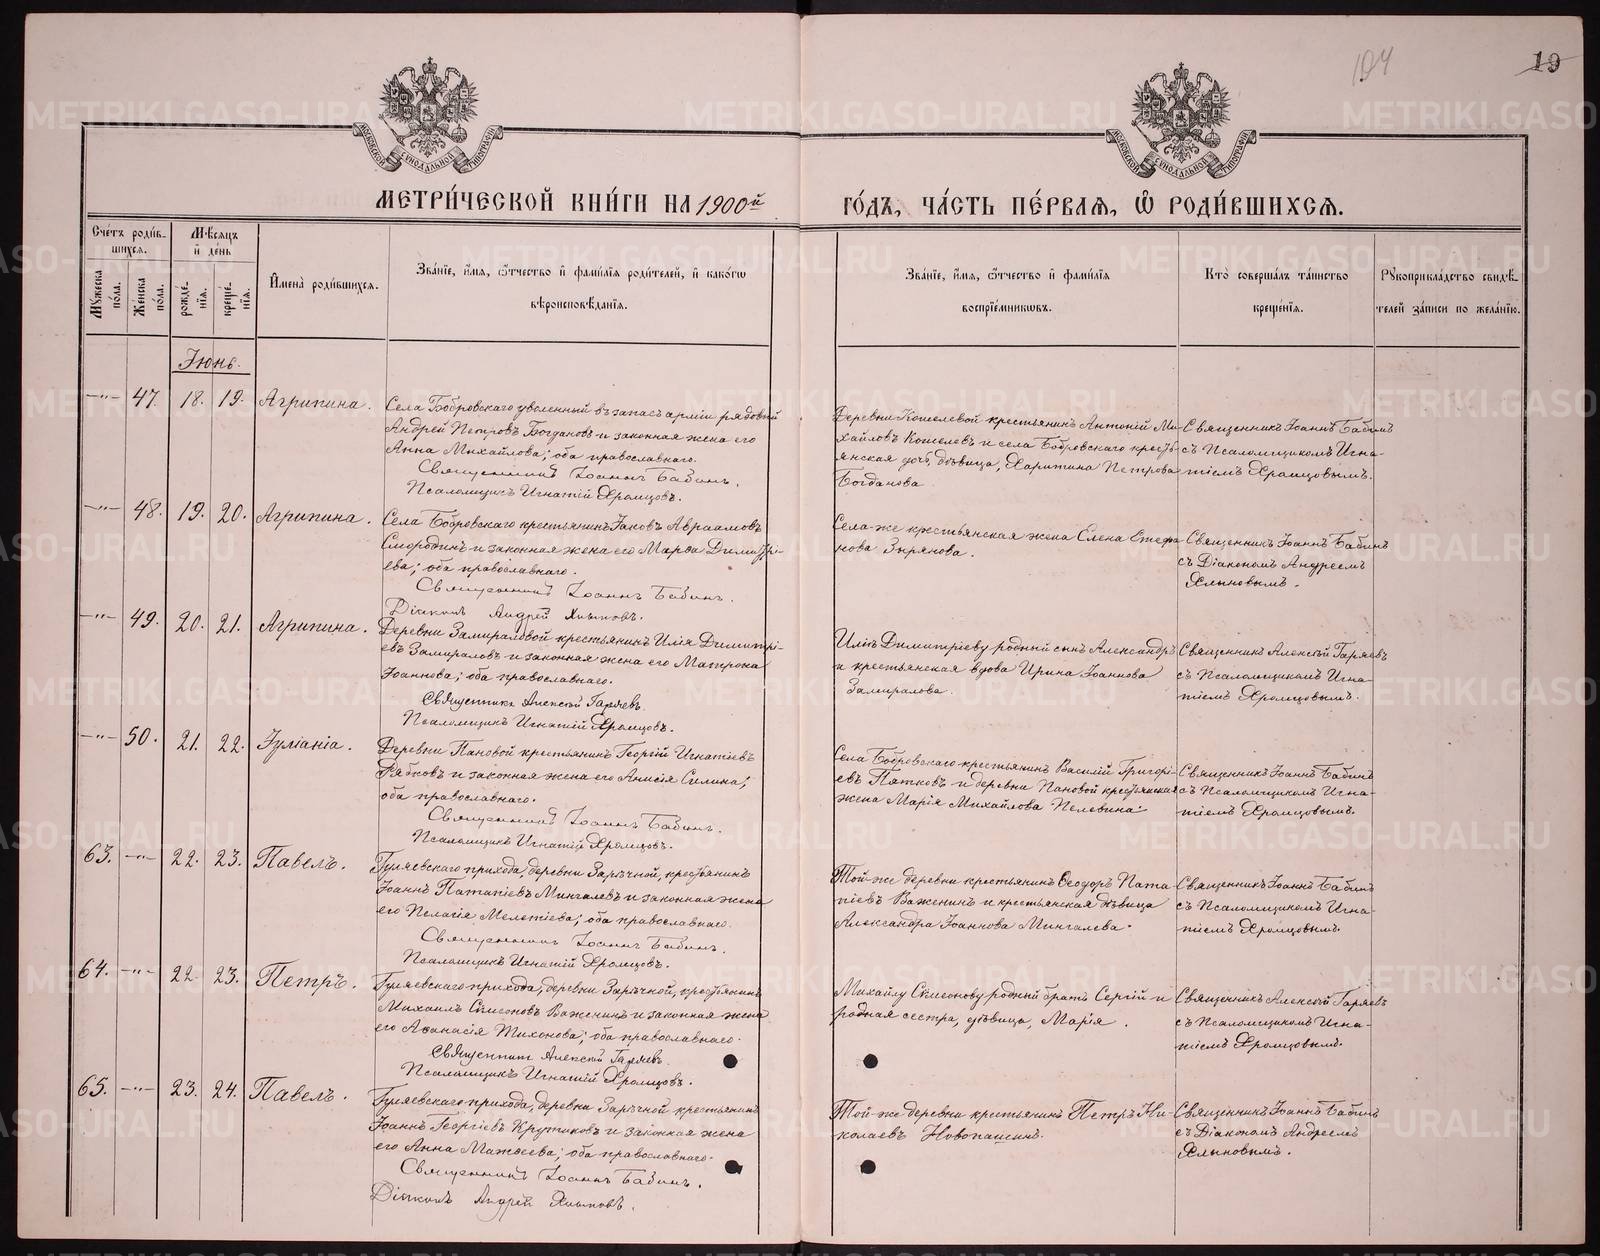 194
19
МОСКОВСКОЙ СѴНОДАЛЬНОЙ ТИПОГРАФІИ
МОСКОВСКОЙ СѴНОДАЛЬНОЙ ТИПОГРАФІИ
МЕТРИ́ЧЕСКОЙ КНИ́ГИ НА 1900й
ГО́ДЪ, ЧА́СТЬ ПЕ́РВАѦ, Ѡ҆ РОДИ́ВШИХСѦ.
Сче́тъ роди́в-
шихся.
Мѣсяцъ
и҆ де́нь
И҆мена̀ роди́вшихся.
Зва́нїе, и҆́мя, ѻ҆́тчество и҆ фами́лїя роди́телей, и҆ како́гѡ
вѣроисповѣ́данїя.
Зва́нїе, и҆́мя, ѻ҆́тчество и҆ фами́лїя
воспрїе́мникѡвъ.
Кто̀ соверша́лъ та́инство
креще́нїя.
Рꙋкоприкла́дство свидѣ́-
телей за́писи по жела́нїю.
Мꙋ́жеска
по́ла.
Же́нска
по́ла.
рожде́-
нїя.
креще́-
нїя.
Іюнь.
—"— 47. 18. 19. Агрипина.
Села Бобровскаго уволенный въ запасъ арміи рядовой
Андрей Петровъ Богдановъ и законная жена его
Анна Михайлова; оба православнаго.
Священникъ Іоаннъ Бабинъ.
Псаломщикъ Игнатій Храмцовъ.
Деревни Кошелевой крестьянинъ Антоній Ми-
хайловъ Кошелевъ и села Бобровскаго кресть-
янская дочь, дѣвица, Харитина Петрова
Богданова
Священникъ Іоаннъ Бабинъ
съ Псаломщикомъ Игна-
тіемъ Храмцовымъ.
—"— 48. 19. 20. Агрипина.
Села Бобровскаго крестьянинъ Іаковъ Авраамовъ
Смородинъ и законная жена его Марѳа Димитрі-
ева; оба православнаго.
Священникъ Іоаннъ Бабинъ.
Діаконъ Андрей Хлыновъ.
Села-же крестьянская жена Елена Стефа-
нова Зырянова.
Священникъ Іоаннъ Бабинъ
съ Діакономъ Андреемъ
Хлыновымъ.
—"— 49. 20. 21. Агрипина.
Деревни Замираловой крестьянинъ Илія Димитрі-
евъ Замираловъ и законная жена его Матрона
Іоаннова; оба православнаго.
Священникъ Алексій Гаряевъ.
Псаломщикъ Игнатій Храмцовъ.
Иліи Димитріеву родный сынъ Александръ
и крестьянская вдова Ирина Іоаннова
Замиралова.
Священникъ Алексій Гаряевъ
съ Псаломщикомъ Игна-
тіемъ Храмцовымъ.
—"— 50. 21. 22. Іуліанія.
Деревни Пановой крестьянинъ Георгій Игнатіевъ
Рябковъ и законная жена его Анисія Силина;
оба православнаго.
Священникъ Іоаннъ Бабинъ.
Псаломщикъ Игнатій Храмцовъ.
Села Бобровскаго крестьянинъ Василій Григорі-
евъ Пятковъ и деревни Пановой крестьянская
жена Марія Михайлова Пелевина.
Священникъ Іоаннъ Бабинъ
съ Псаломщикомъ Игна-
тіемъ Храмцовымъ.
63. —"— 22. 23. Павелъ.
Гуляевскаго прихода, деревни Зарѣчной, крестьянинъ
Іоаннъ Патапіевъ Мингалевъ и законная жена
его Пелагія Мелетіева; оба православнаго.
Священникъ Іоаннъ Бабинъ.
Псаломщикъ Игнатій Храмцовъ.
Той-же деревни крестьянинъ Ѳеодоръ Пата-
піевъ Важенинъ и крестьянская дѣвица
Александра Іоаннова Мингалева.
Священникъ Іоаннъ Бабинъ
съ Псаломщикомъ Игна-
тіемъ Храмцовымъ.
64. —"— 22. 23. Петръ.
Гуляевскаго прихода, деревни Зарѣчной, крестьянинъ
Михаилъ Сѵмеоновъ Важенинъ и законная жена
его Аѳанасія Тихонова; оба православнаго.
Священникъ Алексій Гаряевъ.
Псаломщикъ Игнатій Храмцовъ.
Михаилу Сѵмеонову родный братъ Сергій и
родная сестра, дѣвица, Марія.
Священникъ Алексій Гаряевъ
съ Псаломщикомъ Игна-
тіемъ Храмцовымъ.
65. —"— 23. 24. Павелъ.
Гуляевскаго прихода, деревни Зарѣчной крестьянинъ
Іоаннъ Георгіевъ Крутиковъ и законная жена
его Анна Матѳеева; оба православнаго.
Священникъ Іоаннъ Бабинъ.
Діаконъ Андрей Хлыновъ.
Той-же деревни крестьянинъ Петръ Ни-
колаевъ Новопашинъ.
Священникъ Іоаннъ Бабинъ
съ Діакономъ Андреемъ
Хлыновымъ.
METRIKI.GASO-URAL.RU